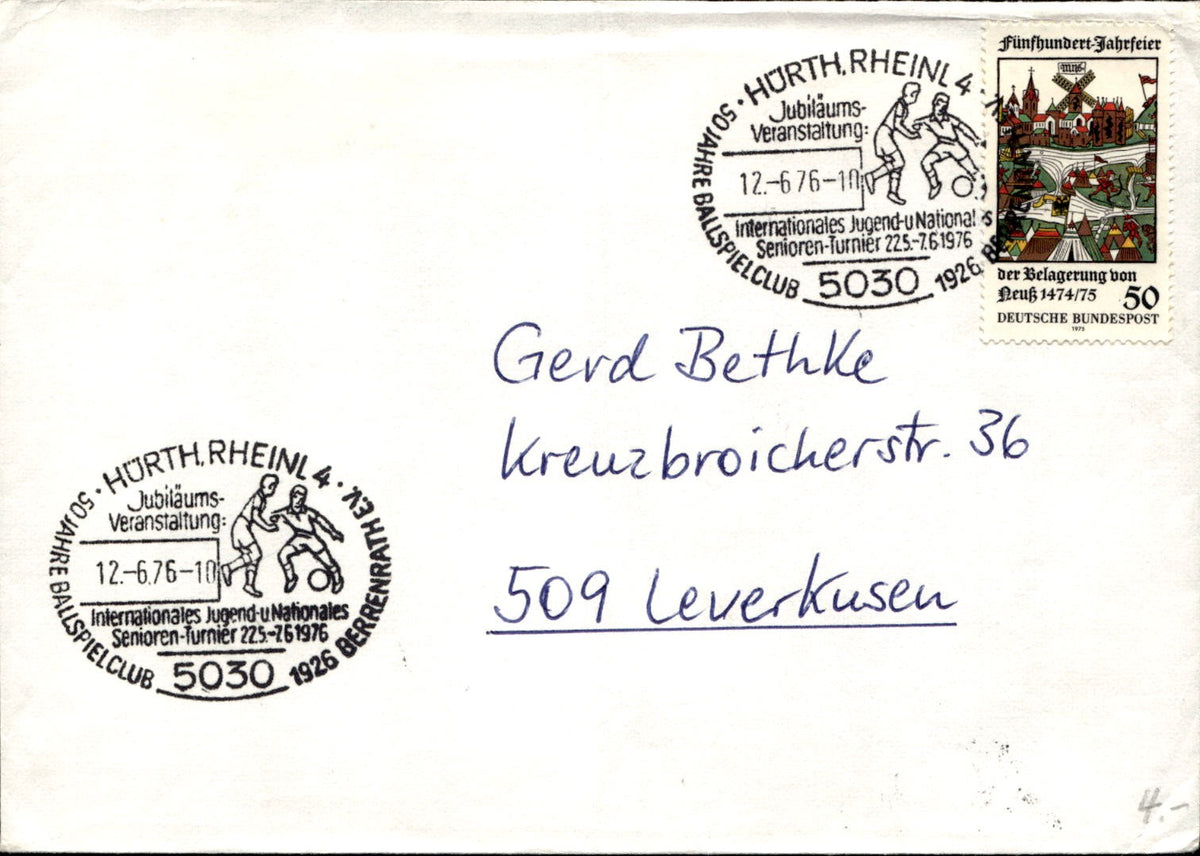 · HÜRTH, RHEINL 4 ·
Jubiläums-
Veranstaltung:
12.-6.76-10
Internationales Jugend-u National s
Senioren-Turnier 22.5.-7.6 1976
50 JAHRE BALLSPIELCLUB 1926 BERRENRATH
5030
Fünfhundert-Jahrfeier
der Belagerung von
Neuß 1474/75 50
DEUTSCHE BUNDESPOST
1975
Gerd Bethke
Kreuzbroicherstr. 36
509 Leverkusen
· HÜRTH, RHEINL 4 ·
Jubiläums-
Veranstaltung:
12.-6.76-10
Internationales Jugend-u Nationales
Senioren-Turnier 22.5.-7.6 1976
50 JAHRE BALLSPIELCLUB 1926 BERRENRATH E.V.
5030
4.-